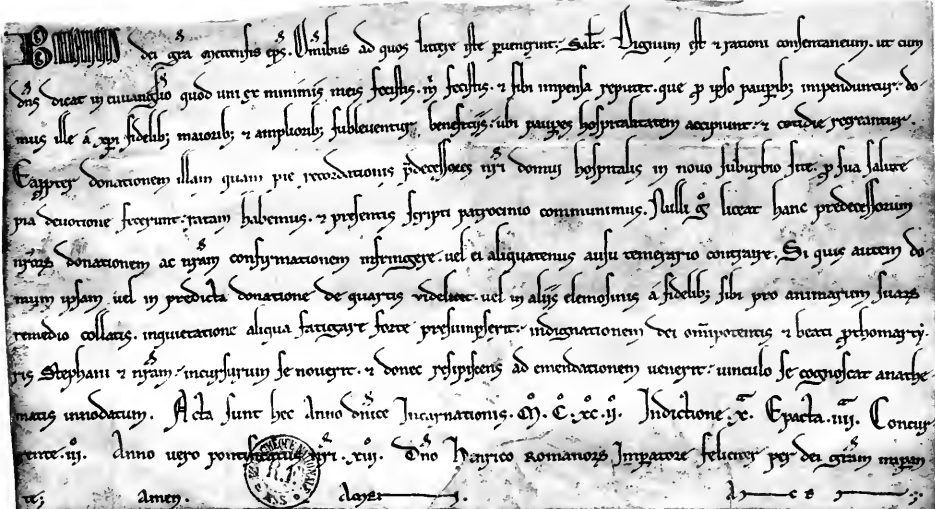 dei gr̄a metensis ep̄s. Om̄ibus ad quos littere iste ꝑuenerint. Salt̄. Dignum est ⁊ rationi consentaneum. ut cum
dn̄s dicat in euuangl̄io quod uni ex minimis meis fecistis. m̄ fecistis. ⁊ sibi impensa reputet. que ꝓ ipso pauꝑibꝫ impenduntur. do
mus ille a xp̄i fidelibꝫ maioribꝫ ⁊ amplioribꝫ subleuentur beneficiis. ubi pauꝑes hospitalitatem accipiunt. ⁊ cotidie recreantur.
Eapropter donationem illam quam pie recordationis p̄decessores nr̄i domui hospitalis in nouo suburbio site. ꝓ sua salute
pia deuotione fecerunt. ratam habemus. ⁊ presentis scripti patrocinio communimus. Nulli gͦ liceat hanc predecessorum
nr̄oꝝ donationem ac nr̄am confirmationem infringere. uel ei aliquatenus ausu temerario contraire. Si quis autem do
mum ipsam uel in predicta donatione de quartis videlicet. uel in aliis elemosinis a fidelibꝫ sibi pro animarum suaꝝ
remedio collatis. inquietatione aliqua fatigare forte presumpserit. indignationem dei om̄ipotentis ⁊ beati ꝓthomarty
ris Stephani ⁊ nr̄am. incursurum se nouerit. ⁊ donec resipiscens ad emendationem uenerit. uinculo se cognoscat anathe
matis innodatum. Acta sunt hec Anno dn̄ice Incarnationis. M̊. C̊. xc̊. ij̊. Indictione .x. Epacta .iiii. Concur
rente .iii. Anno uero pontificatus nr̄i .xiii. Dn̄o Henrico Romanoꝝ Imperatore feliciter per dei gr̄am imperan
te; amen. Amen. A M E N.
BIBLIOTHEQUE NATIONALE R.F. MSS